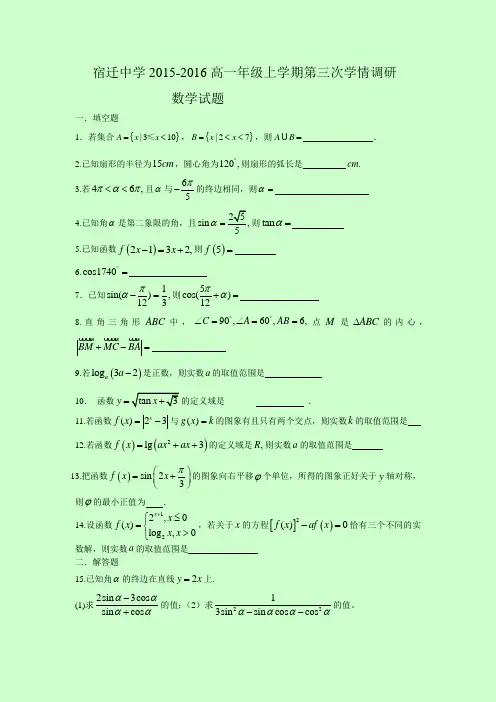 宿迁中学 2015-2016 高一年级上学期第三次学情调研
数学试题
一．填空题
1．若集合 A={x|3≤x<10}，B={x|2<x<7}，则 A∪B= ．
2.已知扇形的半径为15cm，圆心角为120°,则扇形的弧长是 cm.
3.若4π<α<6π,且α与-6π/5的终边相同，则α=
4.已知角α是第二象限的角，且sinα=2√5/5,则tanα=
5.已知函数f(2x-1)=3x+2,则f(5)=
6.cos1740°=
7．已知sin(α-π/12)=1/3,则cos(5π/12+α)=
8.直角三角形ABC中，∠C=90°,∠A=60°,AB=6,点M是△ABC的内心，
BM+MC-BA=
9.若logₐ(3a-2)是正数，则实数a的取值范围是
10． 函数y=√tan x+√3的定义域是 ．
11.若函数f(x)=|2ˣ-3|与g(x)=k的图象有且只有两个交点，则实数k的取值范围是
12.若函数f(x)=lg(ax²+ax+3)的定义域是R,则实数a的取值范围是
13.把函数f(x)=sin(2x+π/3)的图象向右平移φ个单位，所得的图象正好关于y轴对称，
则φ的最小正值为 ．
14.设函数f(x)={2ˣ⁺¹,x≤0 log₂x,x>0，若关于x的方程[f(x)]²-af(x)=0恰有三个不同的实
数解，则实数a的取值范围是
二．解答题
15.已知角α的终边在直线y=2x上.
(1)求(2sinα-3cosα)/(sinα+cosα)的值;（2）求1/(3sin²α-sinαcosα-cos²α)的值。